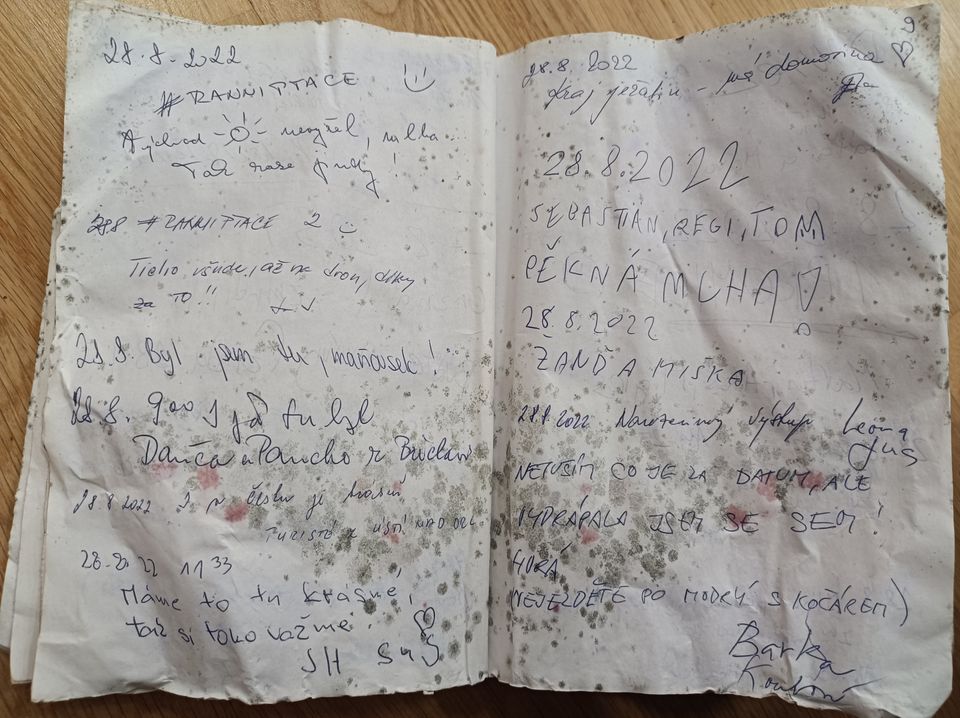 28.8.2022
#RANNIPTACE
nevyšel, mlha
Tak zase
288 #RANNIPTACE 2
Ticho všude, až na dron, díky
za TO!!
28.8. Byl jsem tu, maňousek!
28.8. 9:00 I já tu byl
Danča a Pancho z Břeclavi
28.8 2022 I v česku je krásně
TURISTÉ Z ÚSTÍ NAD ORL.
28.8.22 11 33
Máme to tu krásné,
tak si toho važme.
JH SaS
9
28.8. 2022
Kraj - má domovina
28.8.2022
SEBASTIÁN, REGI, TOM
PĚKNÁ MLHA!
28.8.2022
ŽANĎA MIŠKA
28.8.2022 Narozeninový výstup Leona
NETUŠÍM CO JE ZA DATUM, ALE
VYDRÁPALA JSEM SE SEM!
HURÁ
NEJEZDĚTE PO MODRÝ S KOČÁREM)
Barka